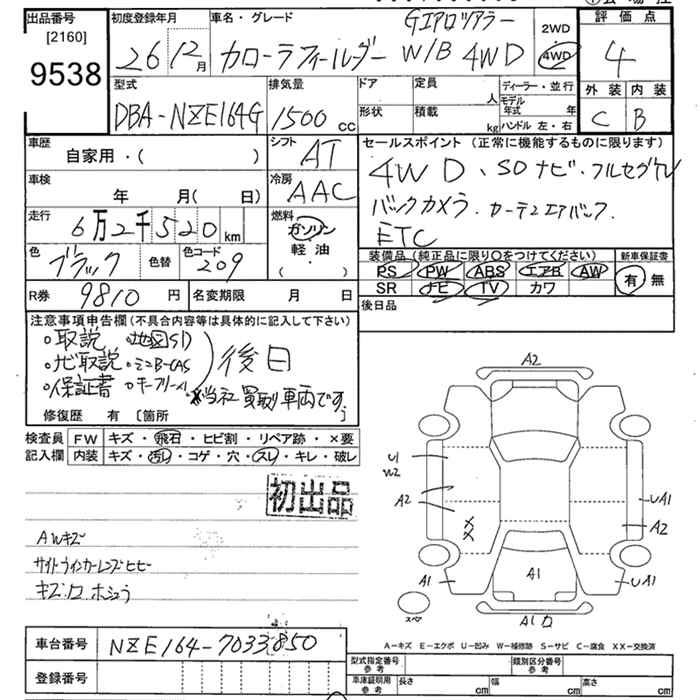 出品番号 [2160] 9538
初度登録年月 26 12月
車名・グレード カローラフィールダー GエアロツアラーW/B 4WD
2WD
4WD
評価点 4
外装 内装
C B
型式 DBA-NZE164G
排気量 1500 cc
ドア 形状
定員 人
積載 kg
ディーラー・並行
モデル年式 年
ハンドル 左・右
車歴 自家用・( )
シフト AT
セールスポイント (正常に機能するものに限ります)
4WD、SDナビ・フルセグTV
バックカメラ・カーテンエアバック・
ETC
車検 年 月( 日)
冷房 AAC
走行 6万2千520 km
燃料 ガソリン
軽油
( ・ )
色 ブラック 色替 色コード 209
装備品 (純正品に限り○をつけてください)
新車保証書
PS PW ABS エアB AW
SR ナビ TV カワ
有・無
R券 9810 円
名変期限 月 日
後日品
注意事項申告欄 (不具合内容等は具体的に記入して下さい)
。取説 。地図SD
。ナビ取説 。ミニB-CAS
。保証書 。キーフリー×1
後日
※当社買取り車両です。
修復歴 有 〔箇所 〕
検査員 FW キズ・飛石・ヒビ割・リペア跡・×要
記入欄 内装 キズ・汚レ・コゲ・穴・スレ・キレ・破レ
初出品
AWキズ
サイドウィンカーレンズヒビ
A2
U1
W2
A2
UA1
A2
A1
A1
UA1
スペア
A1
車台番号 NZE164-7033850
登録番号
A－キズ E－エクボ U－凹み W－補修跡 S－サビ C－腐食 XX－交換済
型式指定番号 参考
類別区分番号 参考
車庫証明用 参考
長さ cm
幅 cm
高さ cm